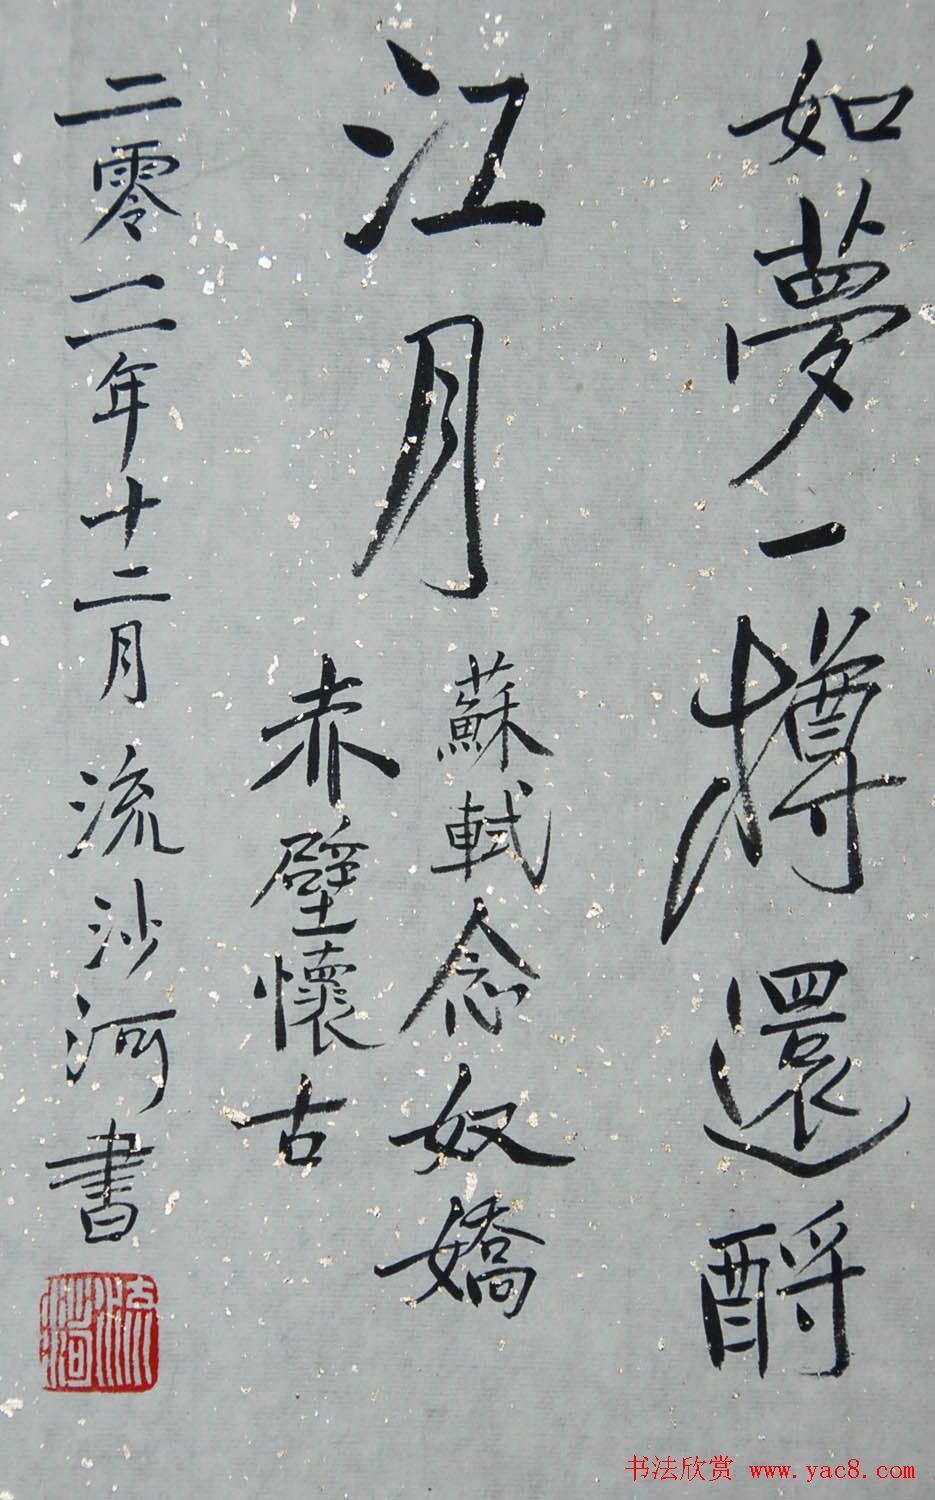 如夢一樽還酹
江月
蘇軾念奴嬌
赤壁懷古
二零一一年十二月 流沙河書
流沙河
书法欣赏 www.yac8.com